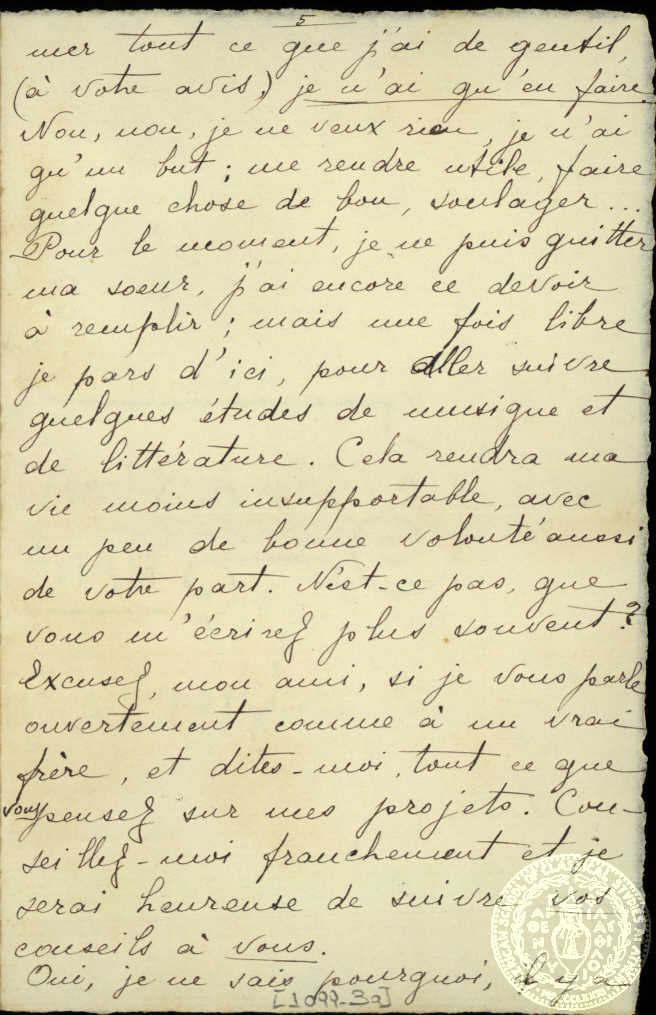 5
mer tout ce que j'ai de gentil,
(à votre avis,) je n'ai qu'en faire.
Non, non, je ne veux rien, je n'ai
qu'un but ; me rendre utile, faire
quelque chose de bon, soulager...
Pour le moment, je ne puis quitter
ma soeur, j'ai encore ce devoir
à remplir ; mais une fois libre
je pars d'ici, pour aller suivre
quelques études de musique et
de littérature. Cela rendra ma
vie moins insupportable, avec
un peu de bonne volonté aussi
de votre part. N'est-ce pas, que
vous m'écrirez plus souvent ?
Excusez, mon ami, si je vous parle
ouvertement comme à un vrai
frère, et dites-moi, tout ce que
vous pensez sur mes projets. Con-
seillez-moi franchement et je
serai heureuse de suivre vos
conseils à vous.
Oui, je ne sais pourquoi, il y a
[1099-3a]